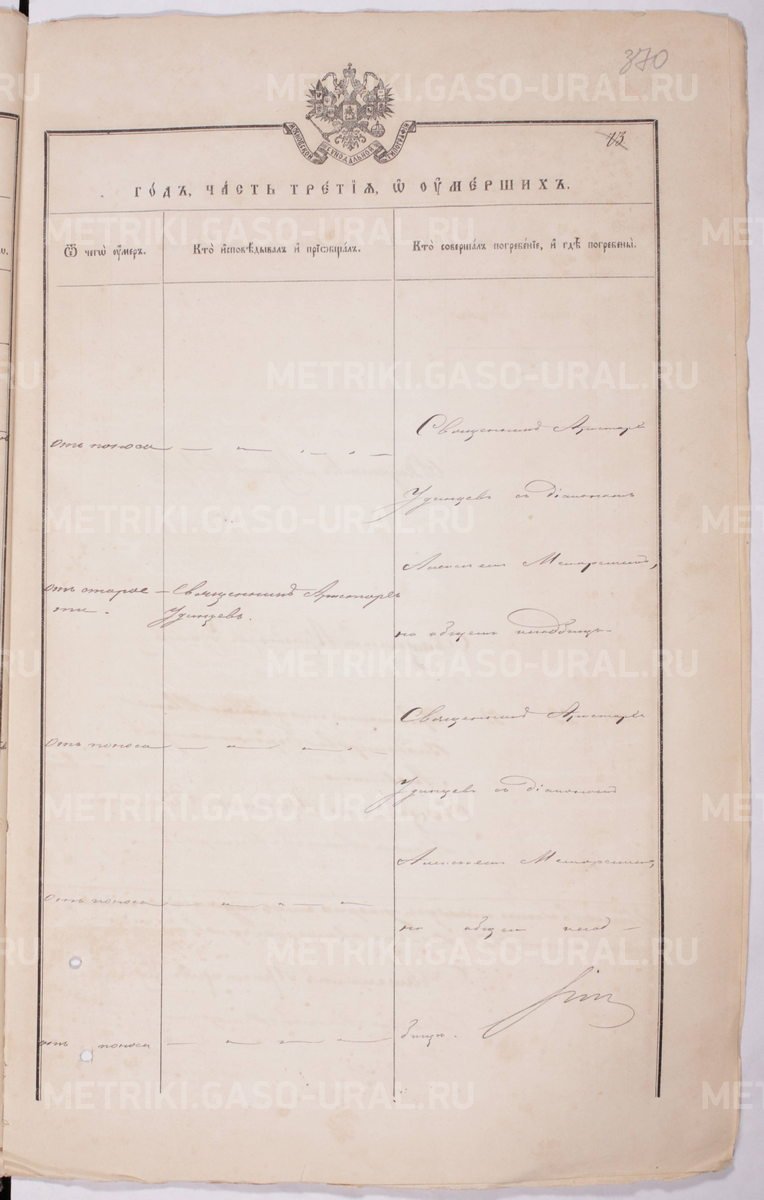 370
13
МОСКОВСКОЙ СѴНОДАЛЬНОЙ ТИПОГРАФІИ
ГО́ДЪ, ЧА́СТЬ ТРЕ́ТІѦ, Ѡ҆ ОУ҆МЕ́РШИХЪ.
Ѿ чегѡ̀ оу҆́меръ.
Кто̀ и҆сповѣ́дывалъ и҆ прїѡбща́лъ.
Кто̀ соверша́лъ погребе́нїе, и҆ гдѣ̀ погребены̀.
отъ поноса
Священникъ Аристархъ
Удинцевъ съ діакономъ
Алексѣемъ
на общемъ кладбищѣ
отъ старос-
ти.
Священникъ Аристархъ
Удинцевъ.
отъ поноса
Священникъ Аристархъ
Удинцевъ съ діакономъ
Алексѣемъ
на общем клад-
бищѣ.
отъ поноса
отъ поноса
METRIKI.GASO-URAL.RU